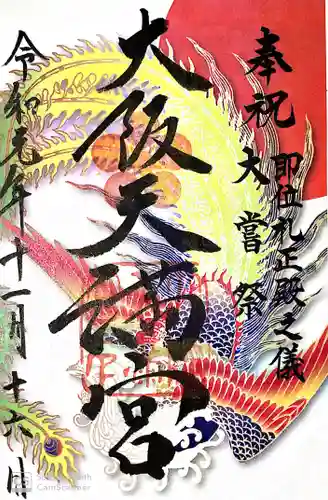 奉祝
即位礼正殿之儀
大嘗祭
大阪天満宮
令和元年十一月十六日
Scanned with
CamScanner